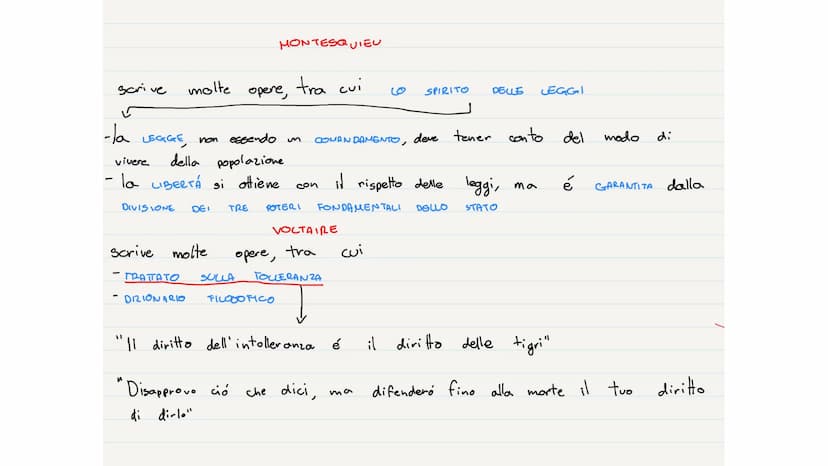 MONTESQUIEU
scrive molte opere, tra cui LO SPIRITO DELLE LEGGI
-la LEGGE, non essendo un COMANDAMENTO, deve tener conto del modo di
vivere della popolazione
- la LIBERTÁ si ottiene con il rispetto delle leggi, ma é GARANTITA dalla
DIVISIONE DEI TRE POTERI FONDAMENTALI DELLO STATO
VOLTAIRE
scrive molte opere, tra cui
- TRATTATO SULLA TOLLERANZA
- DIZIONARIO FILOSOFICO
"Il diritto dell'intolleranza é il diritto delle tigri"
"Disapprovo ció che dici, ma difenderó fino alla morte il tuo diritto
di dirlo"